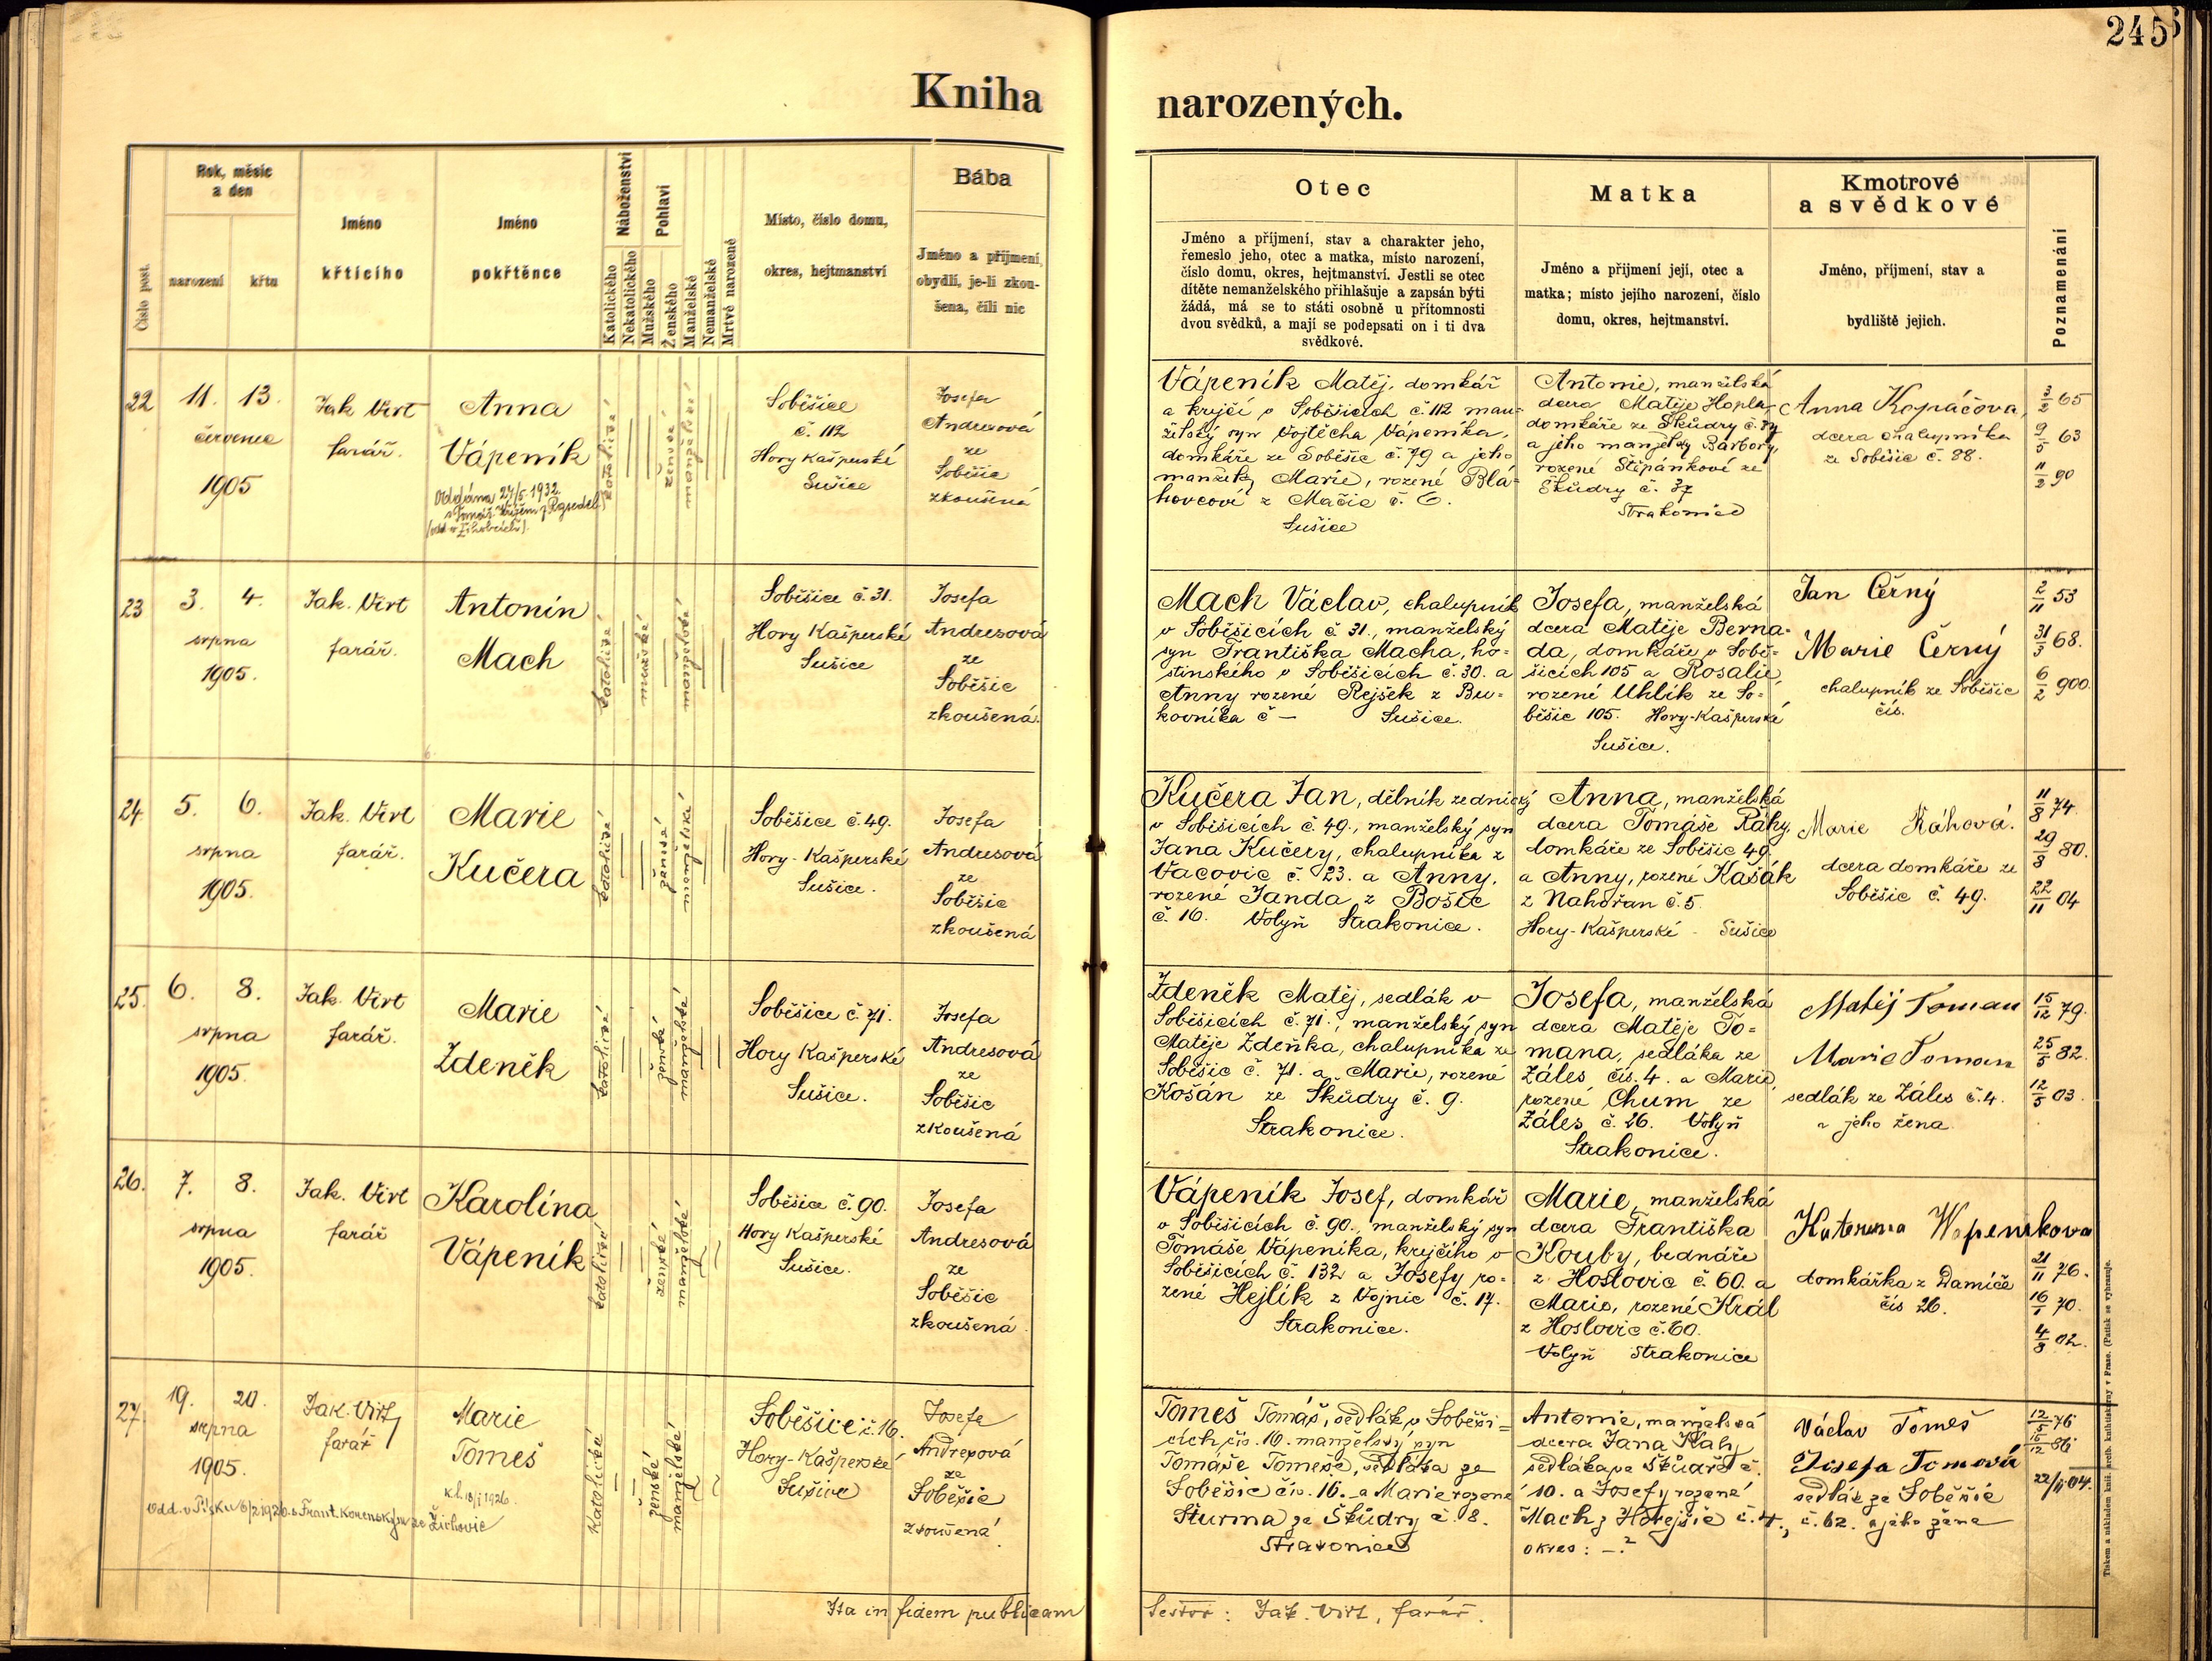 245
Kniha narozených.
Číslo post.
Rok, měsíc
a den
narození
křtu
Jméno
křtícího
Jméno
pokřtěnce
Náboženství
Katolického
Nekatolického
Pohlaví
Mužského
Ženského
Manželské
Nemanželské
Mrtvě narozené
Místo, číslo domu,
okres, hejtmanství
Bába
Jméno a příjmení,
obydlí, je-li zkou-
šena, čili nic
Otec
Jméno a příjmení, stav a charakter jeho,
řemeslo jeho, otec a matka, místo narození,
číslo domu, okres, hejtmanství. Jestli se otec
dítěte nemanželského přihlašuje a zapsán býti
žádá, má se to státi osobně u přítomnosti
dvou svědků, a mají se podepsati on i ti dva
svědkové.
Matka
Jméno a příjmení její, otec a
matka; místo jejího narození, číslo
domu, okres, hejtmanství.
Kmotrové
a svědkové
Jméno, příjmení, stav a
bydliště jejich.
Poznamenání
22
11. 13.
července
1905
Jak. Virt
farář.
Anna
Vápeník
Oddána 24/5 1932
(odd. v Žihobcích).
katolické
ženské
manželské
Soběšice
č. 112
Hory Kašperské
Sušice
Josefa
Andresová
ze
Soběšic
zkoušená
Vápeník Matěj, domkář
a krejčí v Soběšicích č. 112 man-
želský syn Vojtěcha Vápeníka,
domkáře ze Soběšic č. 79 a jeho
manželky Marie, rozené Bla-
hovcové z Mačic č. 6.
Sušice
Antonie, manželská
dcera Matěje Hopla,
domkáře ze Škůdry č. 37
a jeho manželky Barbory,
rozené Štěpánkové ze
Škůdry č. 37
Strakonice
Anna Kopáčova,
dcera chalupníka
ze Soběšic č. 88.
3/2 65
9/5 63
11/2 90
23
3. 4.
srpna
1905.
Jak. Virt
farář.
Antonín
Mach
katolické
mužské
manželské
Soběšice č. 31.
Hory Kašperské
Sušice
Josefa
Andresová
ze
Soběšic
zkoušená.
Mach Václav, chalupník
v Soběšicích č 31., manželský
syn Františka Macha, ho-
stinského v Soběšicích č. 30. a
Anny rozené Rejšek z Bu-
kovníka č — Sušice.
Josefa, manželská
dcera Matěje Berna-
da, domkáře v Sobě-
šicích 105 a Rosalie,
rozené Uhlík ze So-
běšic 105. Hory-Kašperské
Sušice.
Jan Černý
Marie Černý
chalupník ze Soběšic
čís.
2/11 53
31/3 68.
6/2 900.
24
5. 6.
srpna
1905.
Jak. Virt
farář.
Marie
Kučera
katolické
ženské
manželské
Soběšice č. 49.
Hory-Kašperské
Sušice.
Josefa
Andresová
ze
Soběšic
zkoušená
Kučera Jan, dělník zednický
v Soběšicích č 49., manželský syn
Jana Kučery, chalupníka z
Vacovic č. 23. a Anny,
rozené Janda z Bošic
č. 16. Volyň Strakonice.
Anna, manželská
dcera Tomáše Ráhy,
domkáře ze Soběšic 49
a Anny, rozené Kašák
z Nahořan č. 5.
Hory-Kašperské - Sušice
Marie Ráhová.
dcera domkáře ze
Soběšic č. 49.
11/8 74.
29/8 80.
22/11 04
25.
6. 8.
srpna
1905.
Jak. Virt
farář.
Marie
Zdeněk
katolické
ženské
manželské
Soběšice č. 71.
Hory Kašperské
Sušice.
Josefa
Andresová
ze
Soběšic
zkoušená
Zdeněk Matěj, sedlák v
Soběšicích č. 71., manželský syn
Matěje Zdeňka, chalupníka ze
Soběšic č. 71. a Marie, rozené
Košán ze Škůdry č. 9.
Strakonice.
Josefa, manželská
dcera Matěje To-
mana, sedláka ze
Záles čís. 4. a Marie,
rozené Chum ze
Záles č. 26. Volyň
Strakonice.
Matěj Toman
Marie Toman
sedlák ze Záles č. 4.
a jeho žena
15/12 79.
25/5 82.
12/5 03.
26.
7. 8.
srpna
1905.
Jak. Virt
farář
Karolína
Vápeník
katolické
ženské
manželské
Soběšice č. 90.
Hory Kašperské
Sušice.
Josefa
Andresová
ze
Soběšic
zkoušená.
Vápeník Josef, domkář
v Soběšicích č. 90., manželský syn
Tomáše Vápeníka, krejčího v
Soběšicích č. 132 a Josefy ro-
zené Hejlík z Vojnic č. 17.
Strakonice.
Marie, manželská
dcera Františka
Kouby, bednáře
z Hoslovic č. 60. a
Marie, rozené Král
z Hoslovic č. 60.
Volyň Strakonice
Katerina Wapenikova
domkářka z Damíče
čís 26.
21/11 76.
16/1 70.
4/8 02.
27
19. 20.
srpna
1905.
Jak. Virt,
farář
Marie
Tomeš
k.l. 18/I 1926.
odd. v Písku 6/2 1926 s Frant. Korenským ze Žichovic
Katolické
ženské
manželské
Soběšice č. 16.
Hory-Kašperské,
Sušice
Josefa
Andresová
ze
Soběšic
zkoušená.
Tomeš Tomáš, sedlák v Soběši-
cích čís. 16. manželský syn
Tomáše Tomeše, sedláka ze
Soběšic čís. 16. a Marie rozené
Šturma ze Škůdry č. 8.
Strakonice
Antonie, manželská
dcera Jana Kahy
sedláka ze Škůdry č.
10. a Josefy rozené
Mach z Hořejšic č. 4.,
okres: —?
Václav Tomeš
Josefa Tomešová
sedlák ze Soběšic
č. 62. a jeho žena
12/5 76
15/12 86
22/II 04.
Ita in fidem publicam
Sestra: Jak. Virt, farář.
Tiskem a nákladem kníž. arcib. knihtiskárny v Praze. (Patisk se vyhrazuje.